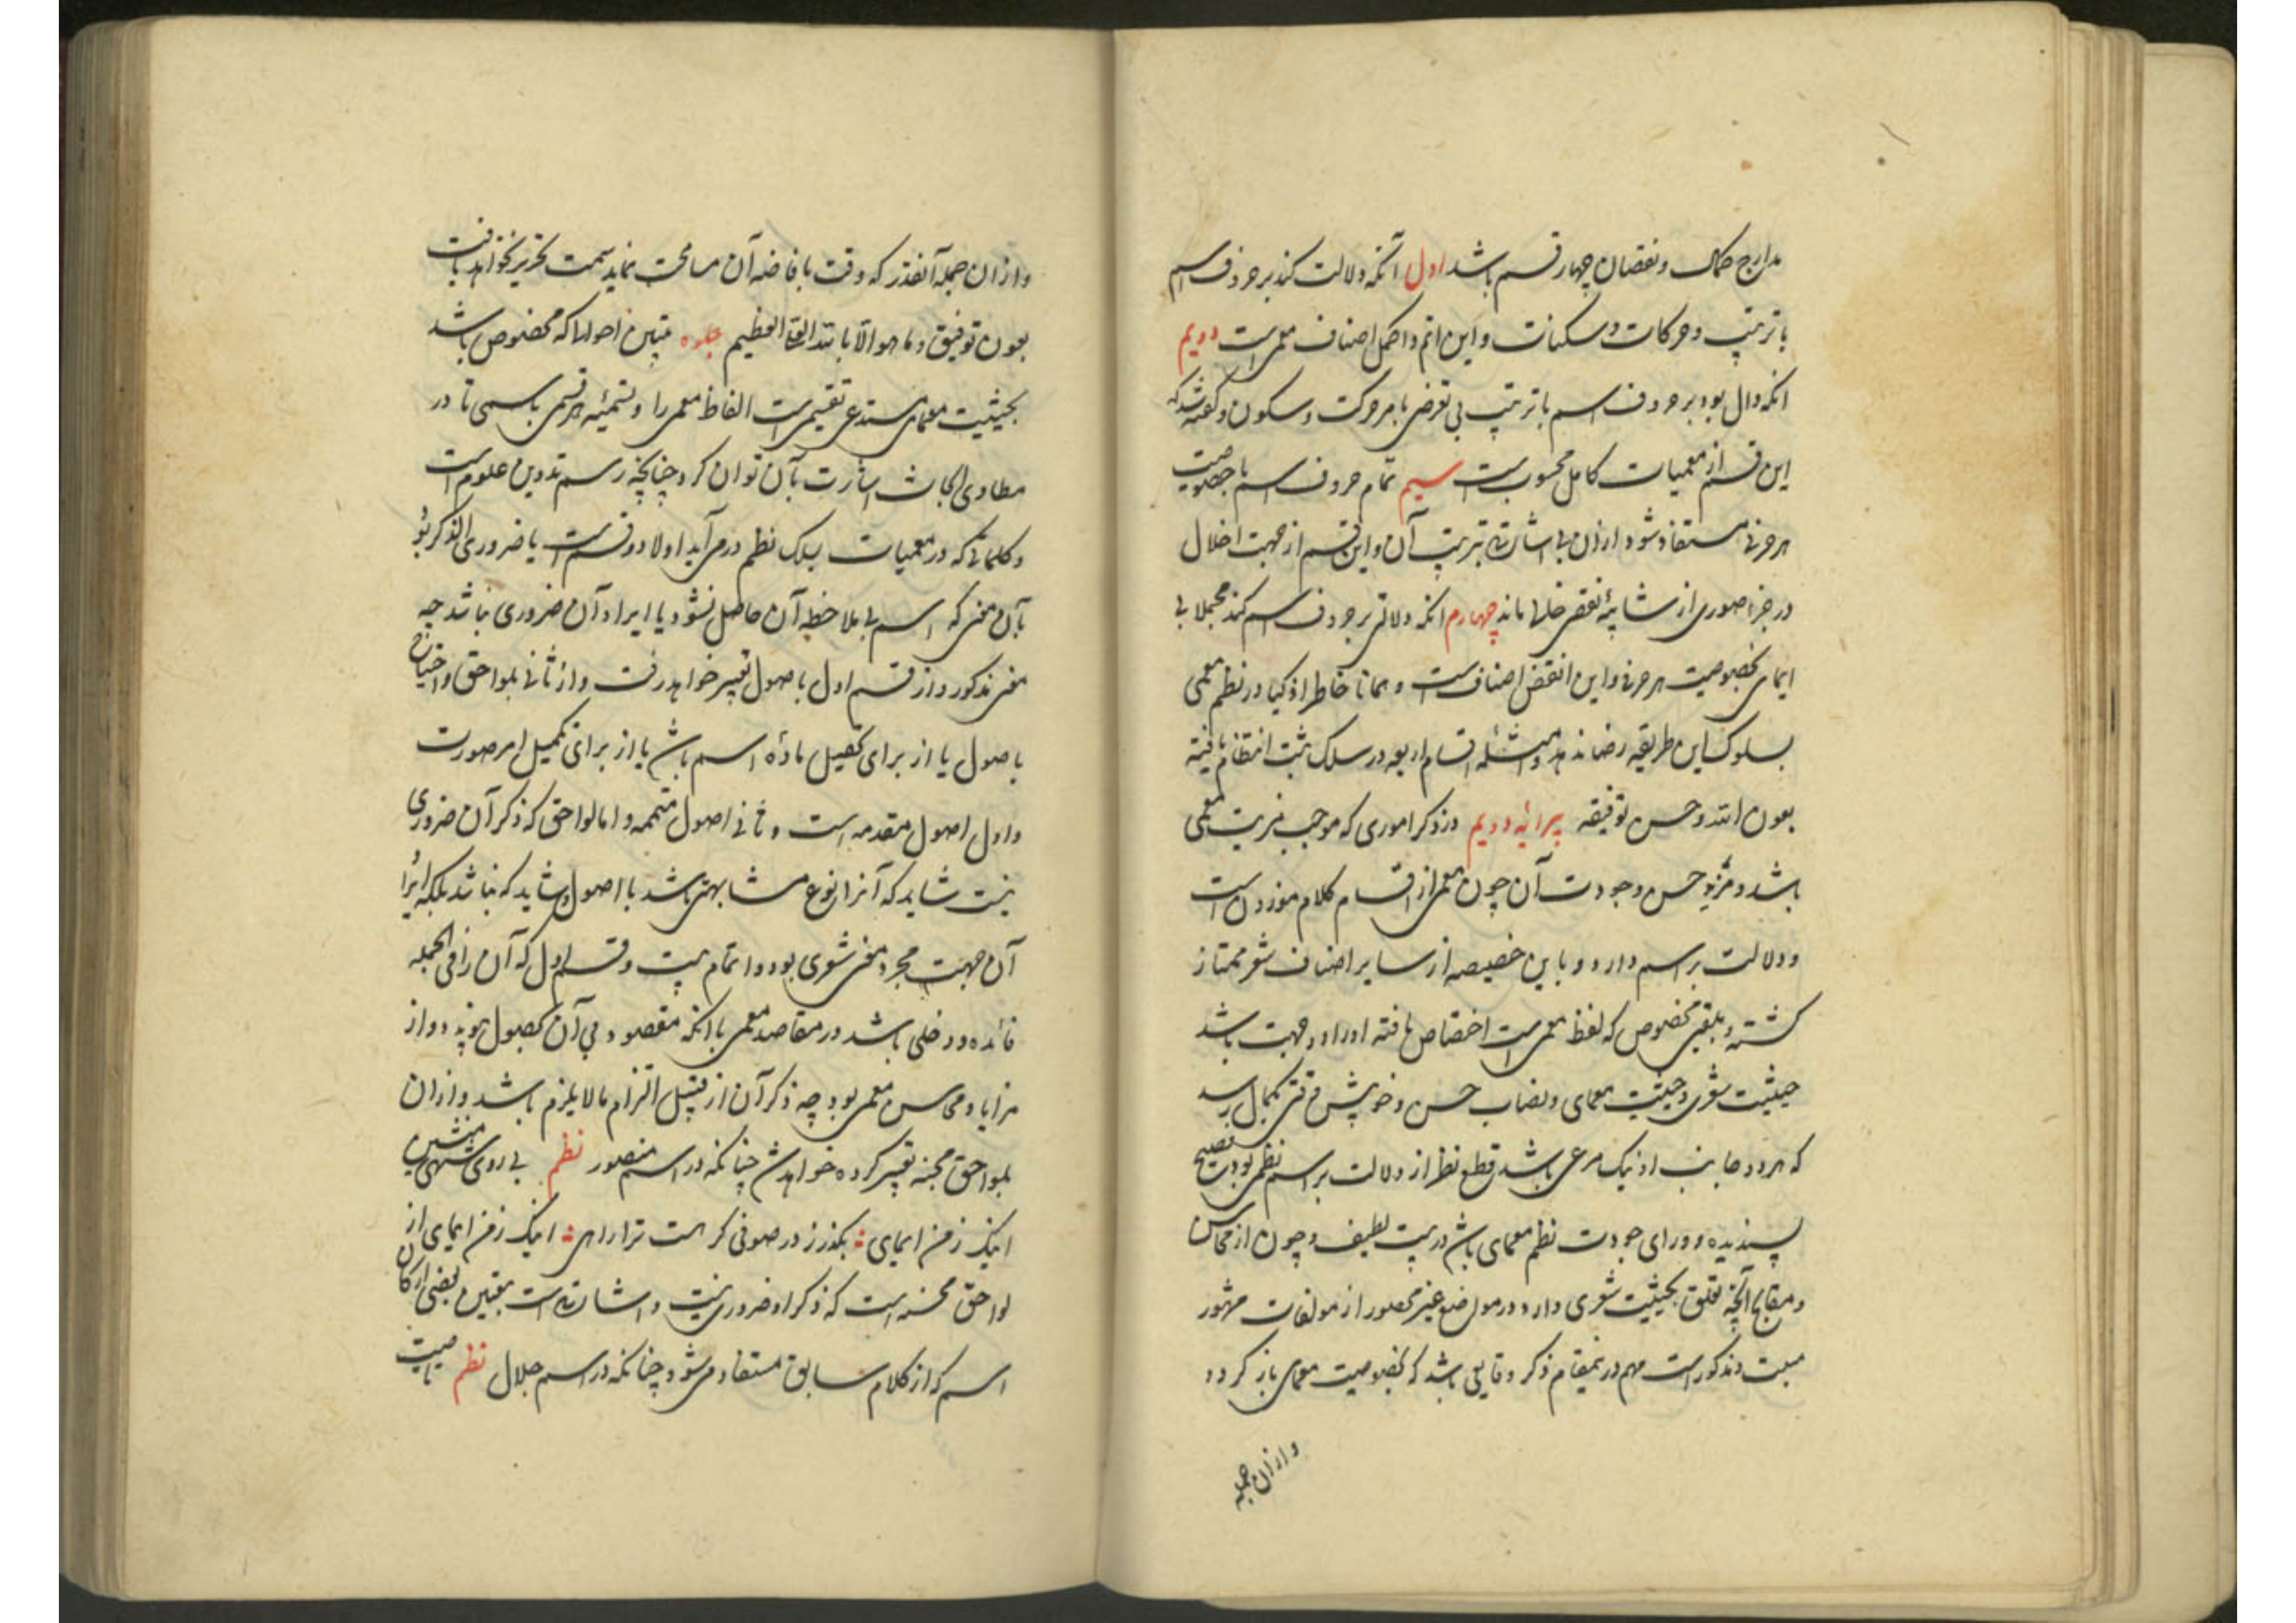 مدارج کمال و نقصان چهار قسم باشد اول آنکه دلالت کند بر حروف اسم
با ترتیب و حرکات و سکنات و این اتم و اکمل اصناف معمی است دویم
انکه دال بود بر حروف اسم با ترتیب بی تعرض بامر حرکت و سکون و گفته شد که
این قسم از معمیات کامل محسوب است سیم تمام حروف اسم با خصوصیت
هر حرفی مستفاد شود از ان بی اشارتی بترتیب آن و این قسم از جهت اخلال
در جزء صوری از شایبهٔ نقص خالی نماند چهارم انکه دلالتی بر حروف اسم کند مجملا بی
ایمای بخصوصیت هر حرفی و این انقض اصناف است و همانا خاطر اذکیا در نظم معمی
بسلوک این طریقه رضا ندهد و امثله اقسام اربعه در سلک ثبت انتظام یافته
بعون الله و حسن توفیقه پیرائیه دویم در ذکر اموری که موجب مزیت معمی
باشد و مزید حسن و جودت آن چون معمی از اقسام کلام موزون است
و دلالت بر اسم دارد و باین خصیصه از سایر اصناف شعر ممتاز
کشته و بلقبی مخصوص که لفظ معمی است اختصاص یافته او را دو جهت باشد
حیثیت شعری و حیثیت معمای و نصاب حسن و خوبیش وقتی بکمال رسد
که هر دو جانب او نیک مرعی باشد قطع نظر از دلالت بر اسم نظمی بود فصیح
پسندیده و ورای جودت نظم معمای باشد در بیت لطیف و چون از محاسن
و مقابح آنچه تعلق بحیثیت شعری دارد در مواضع غیر محصور از مولفات مشهور
مبیت و مذکور است مهم درینمقام ذکر دقایقی باشد که بخصوصیت معمای باز کردد
وازان جمله
وازان جمله آنقدر که وقت بافاضه آن مسامحت نماید سمت تحریر خواهد یافت
بعون توفیق و ما هو الا بالله العلی العظیم جلوه تبیین احوالها که مخصوص باشد
بحیثیت معمای مستدعی تقسیم است الفاظ معمی را و تسمیهٔ هر قسمی باسمی تا در
مطاوی ابحاث اشارت بآن توان کرد چنانچه رسم تدوین علوم است
و کلماتی که در معمیات بسلک نظم در می آید اولا دو قسم است یا ضروری الذکر بود
بآن معنی که اسم بی ملاحظه آن حاصل نشود یا ایراد آن ضروری نباشد چه
معنی مذکور و از قسم اول باصول تعبیر خواهد رفت و از ثانی بلواحق و احتیاج
باصول یا از برای تحصیل مادهٔ اسم باشد یا از برای تکمیل امر صورت
و اول اصول متقدمه است و ثانی اصول متممه و اما لواحق که ذکر آن ضروری
نیست شاید که آنرا نوع مشابهتی باشد با اصول و شاید که نباشد بلکه ایراد
آن جهت مجرد معنی شعری بود و اتمام بیت و قسم اول که آن را فی الجمله
فائده و دخلی باشد در مقاصد معمی با انکه مقصود بی آن بحصول پیوندد از
مزایا و محاسن معمی بود چه ذکر آن از قبیل التزام مالایلزم باشد و از ان
بلواحق محسنه تعبیر کرده خواهد شد چنانکه در اسم منصور نظم بی روی
اینک ز من ایمای بگذر ز در صوفی گر هست ترا راهی اینک ز من ایمای از
لواحق محسنه است که ذکر او ضروری نیست و اشارتی است بتعیین بعضی ارکان
اسم که از کلام سابق مستفاد می شود چنانکه در اسم جلال نظم تا صیت